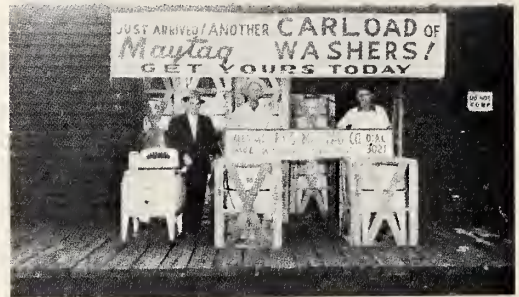 JUST ARRIVED! ANOTHER CARLOAD OF
Maytag WASHERS!
GET YOURS TODAY
CO. DIAL
3021
DO NOT